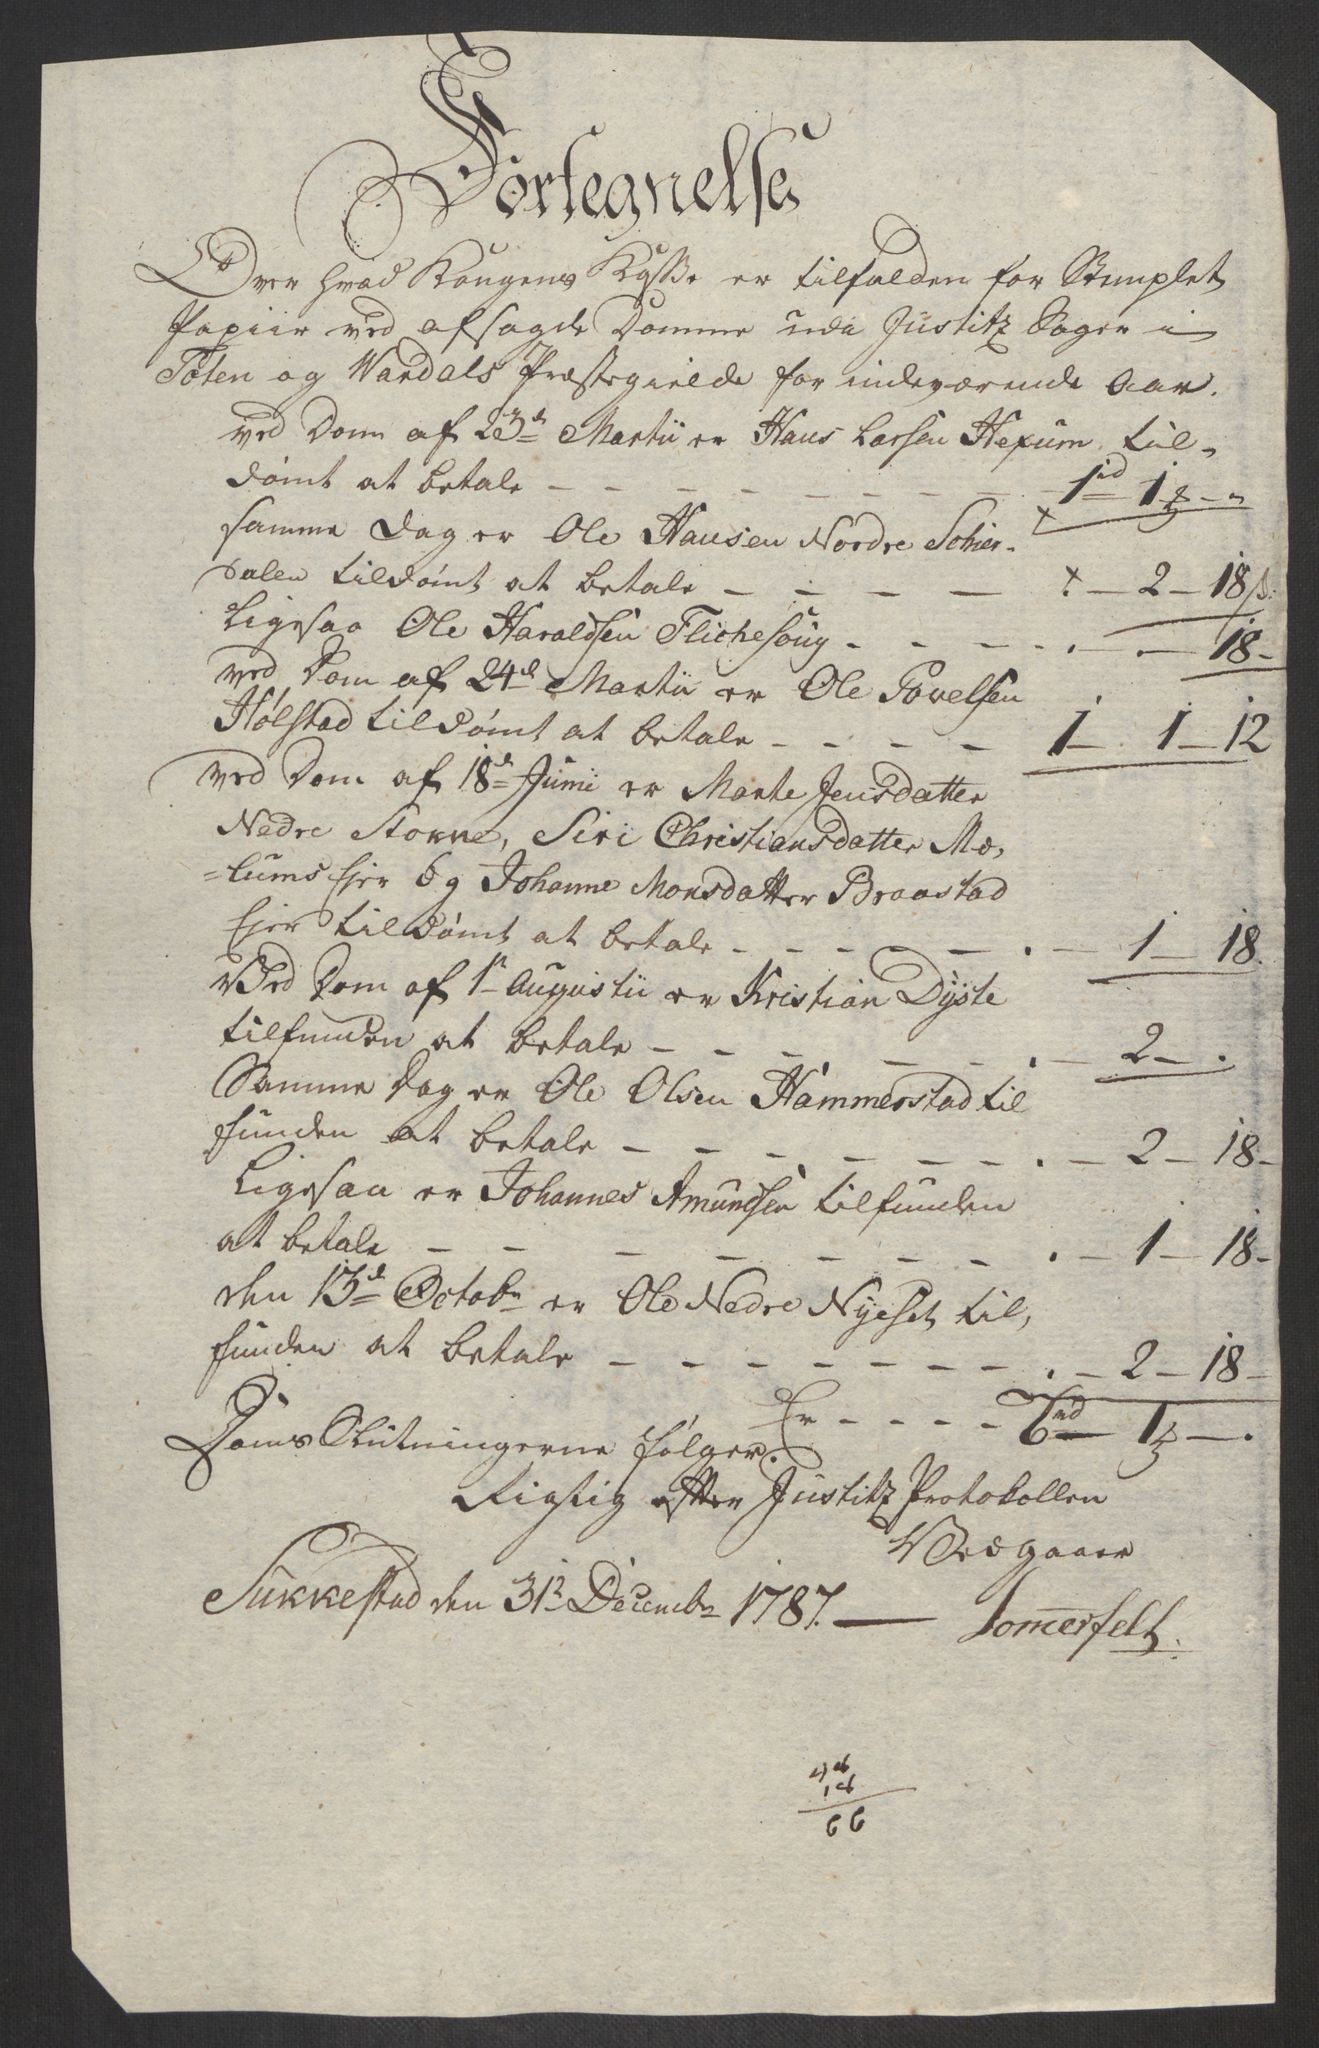 Fortegnelse
Over hvad Kongens Casse er tilfalden for Stemplet
Papiir ved afsagde Domme udi Justitz Sager i
Toten og Wardals Præstegield for indeværende Aar.
ved Dom af 23d Martii er Hans Larsen Hexum til-
dømt at betale - - - - - - - - 1rd 1 ₰ - -
samme Dag er Ole Hansen Nordre Schier-
dalen tildømt at betale - - - - - 2 - 18 s.
Ligesaa Ole Haraldsen Flichesoug - - - - . - 18 -
ved Dom af 24d Martii er Ole Povelsen
Hølstad tildømt at betale - - - - 1 - 1 - 12
ved Dom af 18d Junii er Marte Jensdatter
Nedre Stokne, Siri Christiansdatter Mæ-
=lums Eier og Johanne Monsdatter Braastad
Eier tildømt at betale - - - - - . - 1 - 18.
Ved Dom af 1te Augustii er Kristian Dyste
tilfunden at betale - - - - - - . - 2 - .
Samme Dag er Ole Olsen Hammerstad til
funden at betale - - - - - - - . - 2 - 18 -
Ligesaa er Johannes Amundsen tilfunden
at betale - - - - - - - - . - 1 - 18 -
den 13d Octobr er Ole Nedre Nyeset til,
funden at betale - - - - - - - . - 2 - 18 -
Er - - - - 6rd - 1 ₰ - .
Doms Slutningerne følger.
Rigtig efter Justitz Protokollen
Vedgaaer
Sukkestad den 31te Decembr 1787. — Somerfelt.
48
18
66